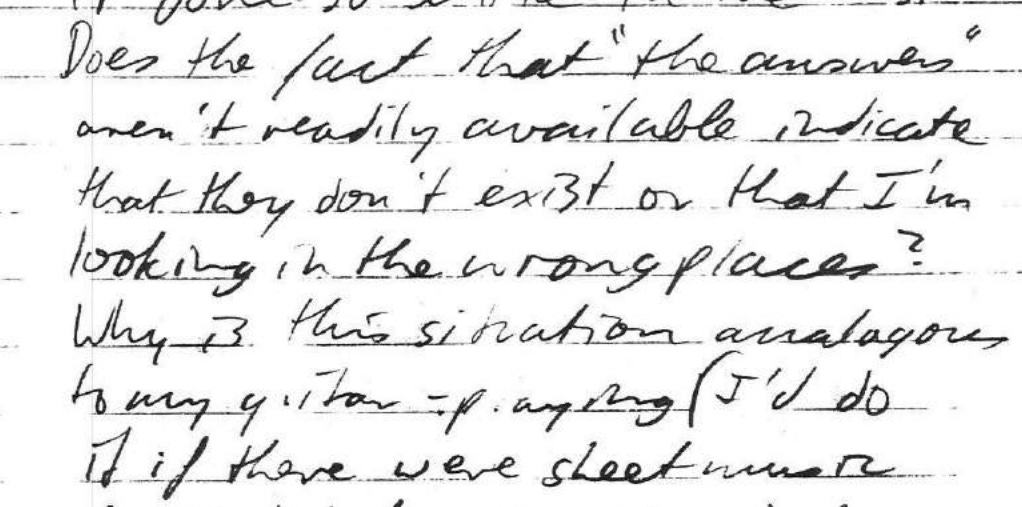 Does the fact that "the answers"
aren't readily available indicate
that they don't exist or that I'm
looking in the wrong places?
Why is this situation analagous
to my guitar-playing (I'd do
it if there were sheet music